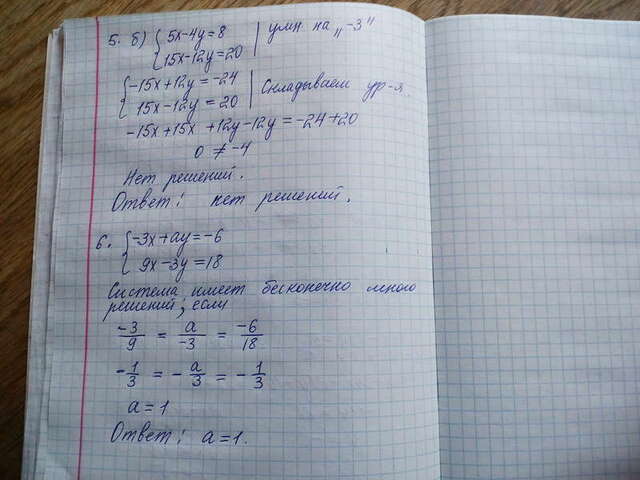 5. б) { 5x-4y=8 | умн. на „-3"
{ 15x-12y=20
{ -15x+12y=-24 | Складываем ур-я.
{ 15x-12y=20
-15x+15x +12y-12y=-24+20
0 ≠ -4
Нет решений.
Ответ: нет решений.
6. { -3x+ay=-6
{ 9x-3y=18
Система имеет бесконечно много
решений, если
-3/9 = a/-3 = -6/18
-1/3 = -a/3 = -1/3
a=1
Ответ: a=1.